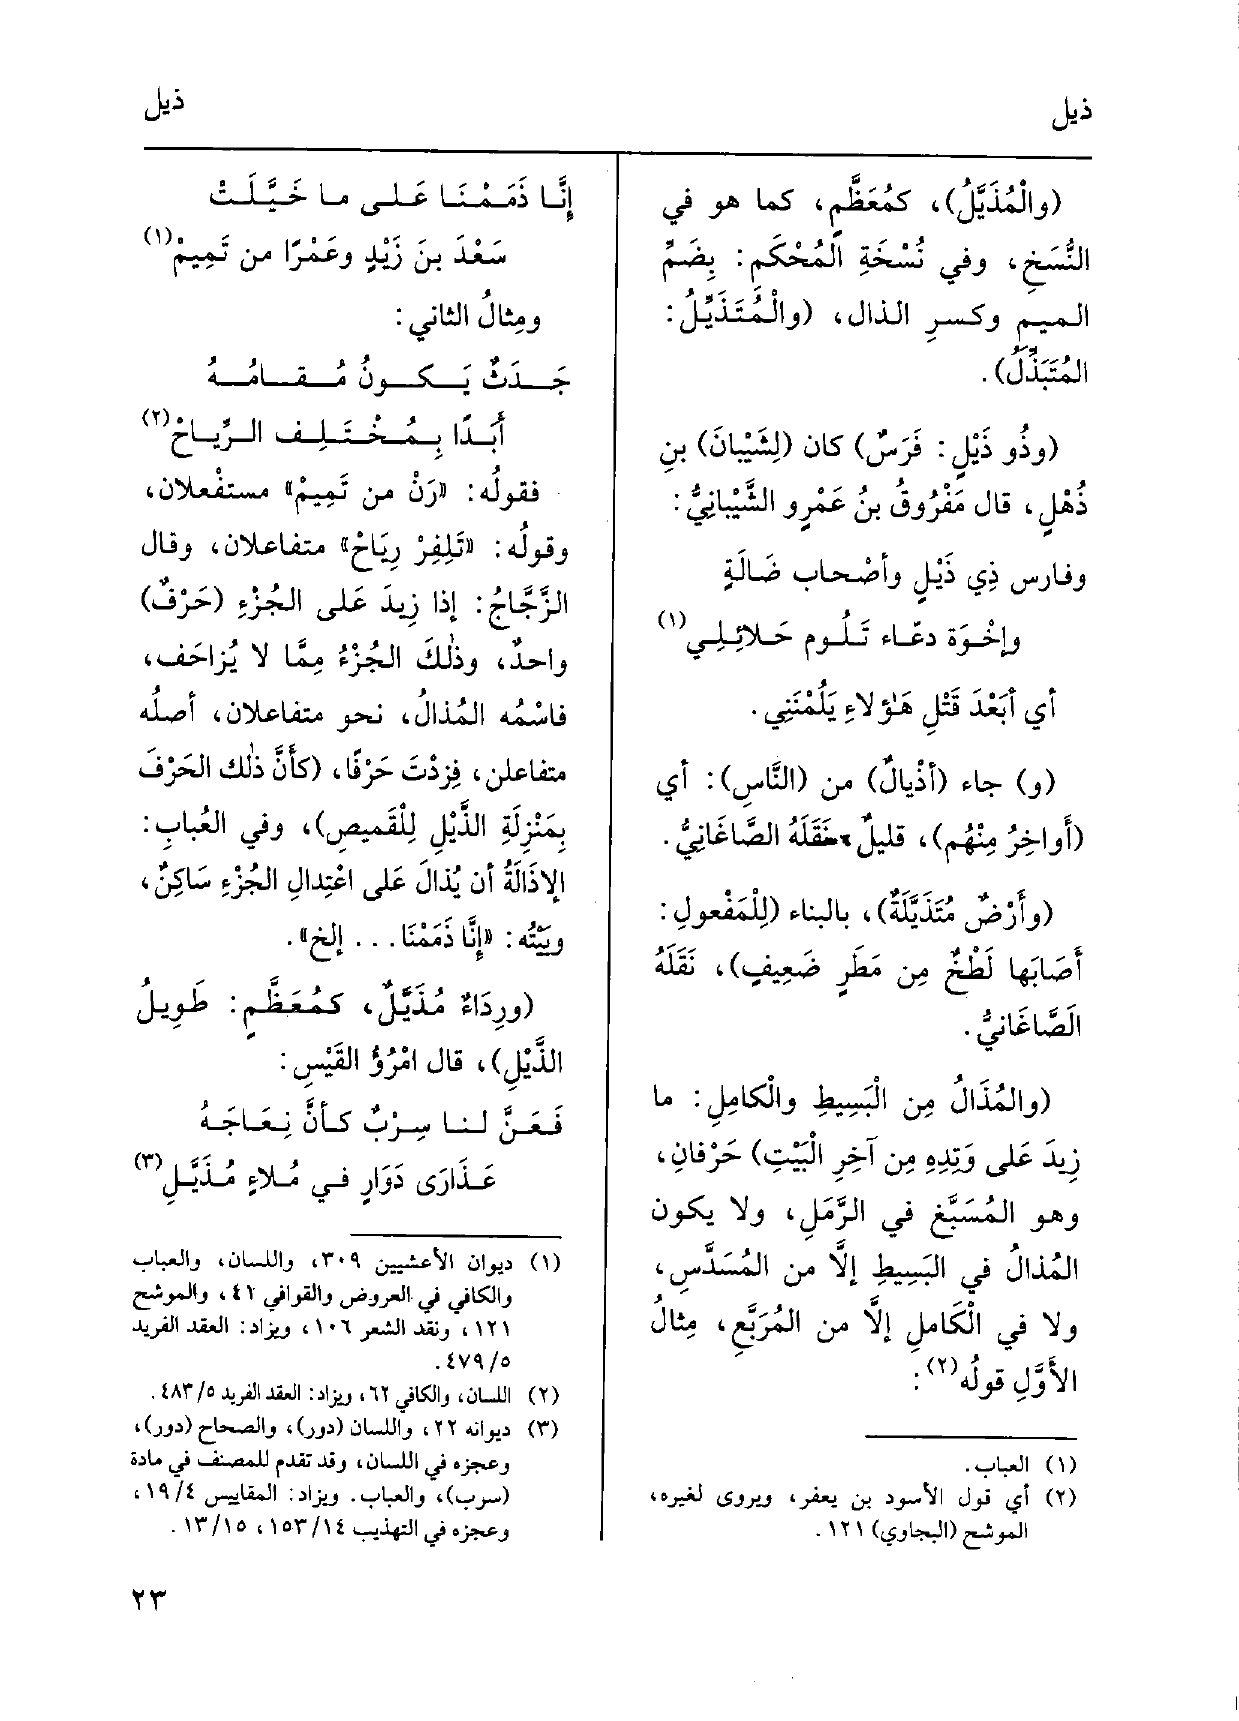 ذيل
ذيل
(والْمُذَيَّلُ)، كمُعَظَّمٍ، كما هو في
النُّسَخِ، وفي نُسْخَةِ الْمُحْكَمِ: بِضَمِّ
الميمِ وكسرِ الذال، (والْمُتَذَيِّلُ:
المُتَبَذِّلُ).
(وذُو ذَيْلٍ: فَرَسٌ) كان (لِشَيْبَانَ) بنِ
ذُهْلٍ، قال مَفْرُوقُ بنُ عَمْرٍو الشَّيْبانِيُّ:
وفارسِ ذِي ذَيْلٍ وأصْحابِ ضَالَةٍ
وإخْوَة دعّاء تَلُوم حَلائِلِي(١)
أي أبَعْدَ قَتْلِ هَؤلاءِ يَلُمْنَنِي.
(و) جاء (أذْيالٌ) من (النَّاسِ): أي
(أواخِرُ مِنْهُم)، قليلٌ، نَقَلَهُ الصَّاغَانِيُّ.
(وأرْضٌ مُتَذَيَّلَةٌ)، بالبناء (لِلْمَفْعولِ:
أصَابَها لَطْخٌ مِن مَطَرٍ ضَعِيفٍ)، نَقَلَهُ
الصَّاغَانِيُّ.
(والمُذَالُ مِن الْبَسِيطِ والْكامِلِ: ما
زِيدَ عَلى وَتِدِهِ مِن آخِرِ الْبَيْتِ) حَرْفانِ،
وهو المُسَبَّغ في الرَّمَلِ، ولا يكون
المُذالُ في البَسِيطِ إلَّا من المُسَدَّسِ،
ولا في الْكَامِلِ إلَّا من المُرَبَّعِ، مِثالُ
الأوَّلِ قولُه(٢):
(١) العباب.
(٢) أي قول الأسود بن يعفر، ويروى لغيره،
الموشح (البجاوي) ١٢١.
إنَّا ذَمَمْنَا عَلى ما خَيَّلَتْ
سَعْدَ بنَ زَيْدٍ وعَمْرًا من تَمِيمْ(١)
ومِثالُ الثاني:
جَدَثٌ يَكونُ مُقامُهُ
أَبَدًا بِمُخْتَلِفِ الرِّياحْ(٢)
فقولُه: «رَنْ من تَمِيمْ» مستفعلان،
وقولُه: «تَلِفِرْ رِيَاحْ» متفاعلان، وقال
الزَّجَّاجُ: إذا زِيدَ عَلى الجُزْءِ (حَرْفٌ)
واحدٌ، وذلكَ الجُزْءُ مِمَّا لا يُزاحَف،
فاسْمُه المُذالُ، نحو متفاعلان، أصلُه
متفاعلن، فزِدْتَ حَرْفًا، (كأنَّ ذلك الحَرْفَ
بِمَنْزِلَةِ الذَّيْلِ لِلْقَميصِ)، وفي العُبابِ:
الإذَالَةُ أن يُذالَ عَلى اعْتِدالِ الجُزْءِ سَاكِنٌ،
وبَيْتُه: «إنَّا ذَمَمْنَا... إلخ».
(ورِدَاءٌ مُذَيَّلٌ، كمُعَظَّمٍ: طَوِيلُ
الذَّيْلِ)، قال امْرُؤُ القَيْسِ:
فَعَنَّ لنا سِرْبٌ كأنَّ نِعَاجَهُ
عَذَارَى دَوَارٍ في مُلاءٍ مُذَيَّلِ(٣)
(١) ديوان الأعشيين ٣٠٩، واللسان، والعباب
والكافي في العروض والقوافي ٤١، والموشح
١٢١، ونقد الشعر ١٠٦، ويزاد: العقد الفريد
٥/ ٤٧٩.
(٢) اللسان، والكافي ٦٢، ويزاد: العقد الفريد ٥/ ٤٨٣.
(٣) ديوانه ٢٢، واللسان (دور)، والصحاح (دور)،
وعجزه في اللسان، وقد تقدم للمصنف في مادة
(سرب)، والعباب. ويزاد: المقاييس ٤/ ١٩،
وعجزه في التهذيب ١٤/ ١٥٣، ١٥/ ١٣.
٢٣